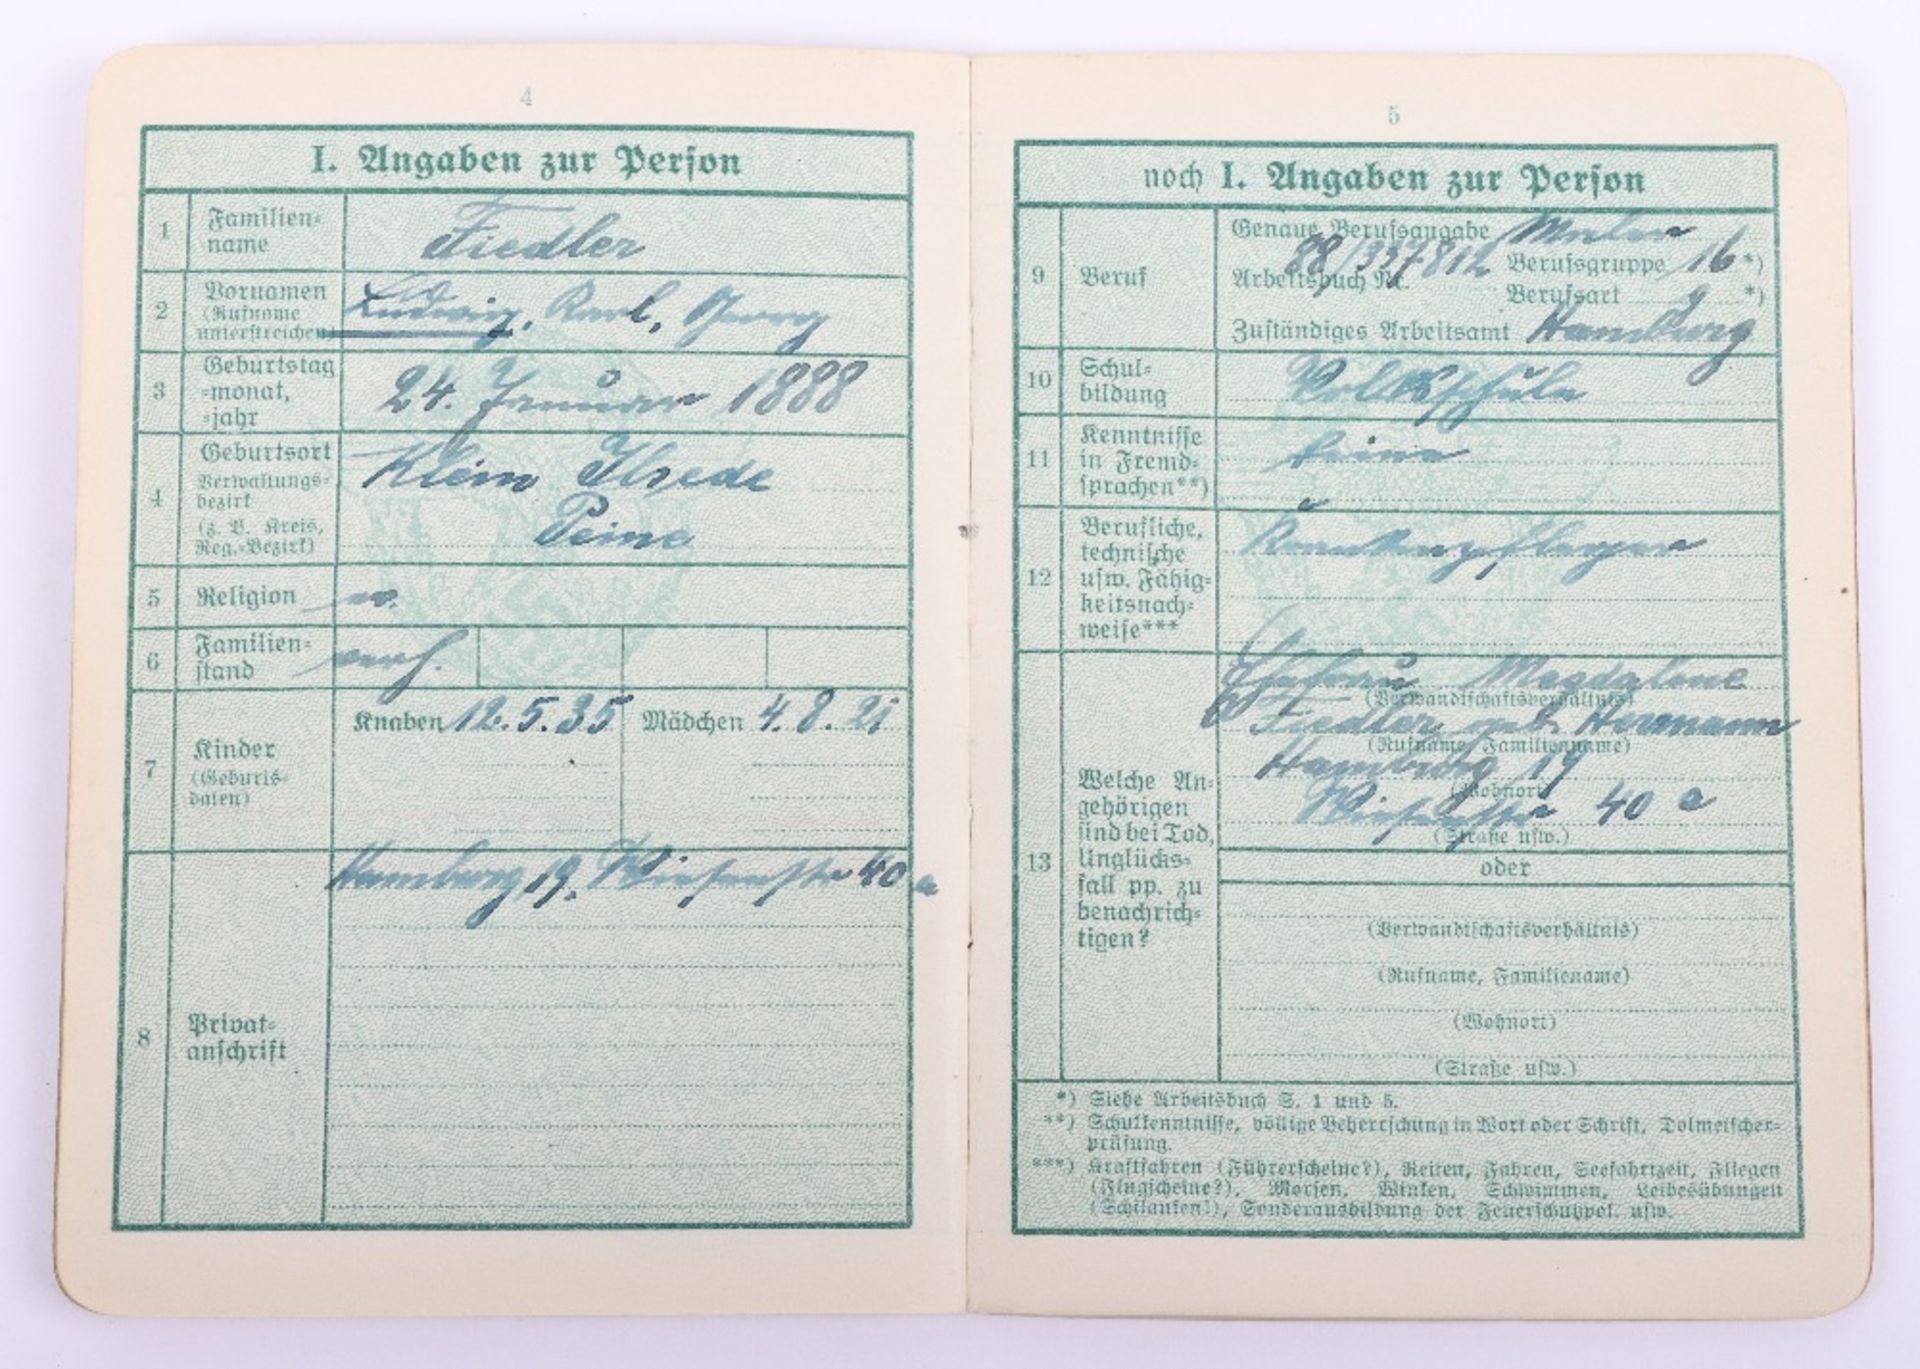 4
I. Angaben zur Person
1
Familien=
name
Fiedler
2
Vornamen
(Rufname
unterstreichen)
Ludwig, Karl, Georg
3
Geburtstag
=monat,
=jahr
24. Januar 1888
4
Geburtsort
Verwaltungs=
bezirk
(z. B. Kreis,
Reg.=Bezirk)
Klein Ilsede
Peine
5
Religion
ev.
6
Familien=
stand
verh.
7
Kinder
(Geburts=
daten)
Knaben 12.5.35
Mädchen 4.8.21
8
Privat=
anschrift
Hamburg 19. Wiesenstr 40 a
5
noch I. Angaben zur Person
9
Beruf
Genaue Berufsangabe Maler
88/337812 Berufsgruppe 16 *)
Arbeitsbuch Nr.
Berufsart 9 *)
Zuständiges Arbeitsamt Hamburg
10
Schul=
bildung
Volksschule
11
Kenntnisse
in Fremd=
sprachen**)
keine
12
Berufliche,
technische
usw. Fähig=
keitsnach=
weise***
Krankenpfleger
13
Welche An=
gehörigen
sind bei Tod,
Unglücks=
fall pp. zu
benachrich=
tigen?
Ehefrau Magdalene
(Verwandtschaftsverhältnis)
Fiedler geb. Hermann
(Rufname, Familienname)
Hamburg 19
(Wohnort)
Wiesenstr 40 a
(Straße usw.)
oder
(Verwandtschaftsverhältnis)
(Rufname, Familienname)
(Wohnort)
(Straße usw.)
*) Siehe Arbeitsbuch S. 1 und 5.
**) Schulkenntnisse, völlige Beherrschung in Wort oder Schrift, Dolmetscher=
prüfung.
***) Kraftfahren (Führerscheine?), Reiten, Fahren, Seefahrtzeit, Fliegen
(Flugscheine?), Morsen, Winken, Schwimmen, Leibesübungen
(Schilaufen!), Sonderausbildung der Feuerschutzpol. usw.